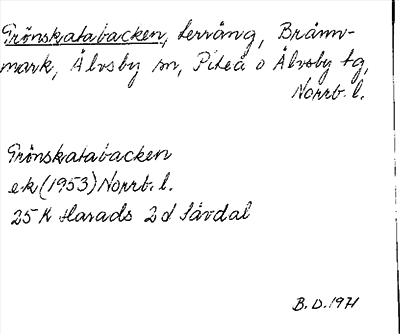 Grönskatabacken, terräng, Bränn-
mark, Älvsby sn, Piteå o Älvsby tg,
Norrb. l.
Grönskatabacken
ek (1953) Norrb. l.
25 K Harads 2 d Sävdal
B. D. 1971